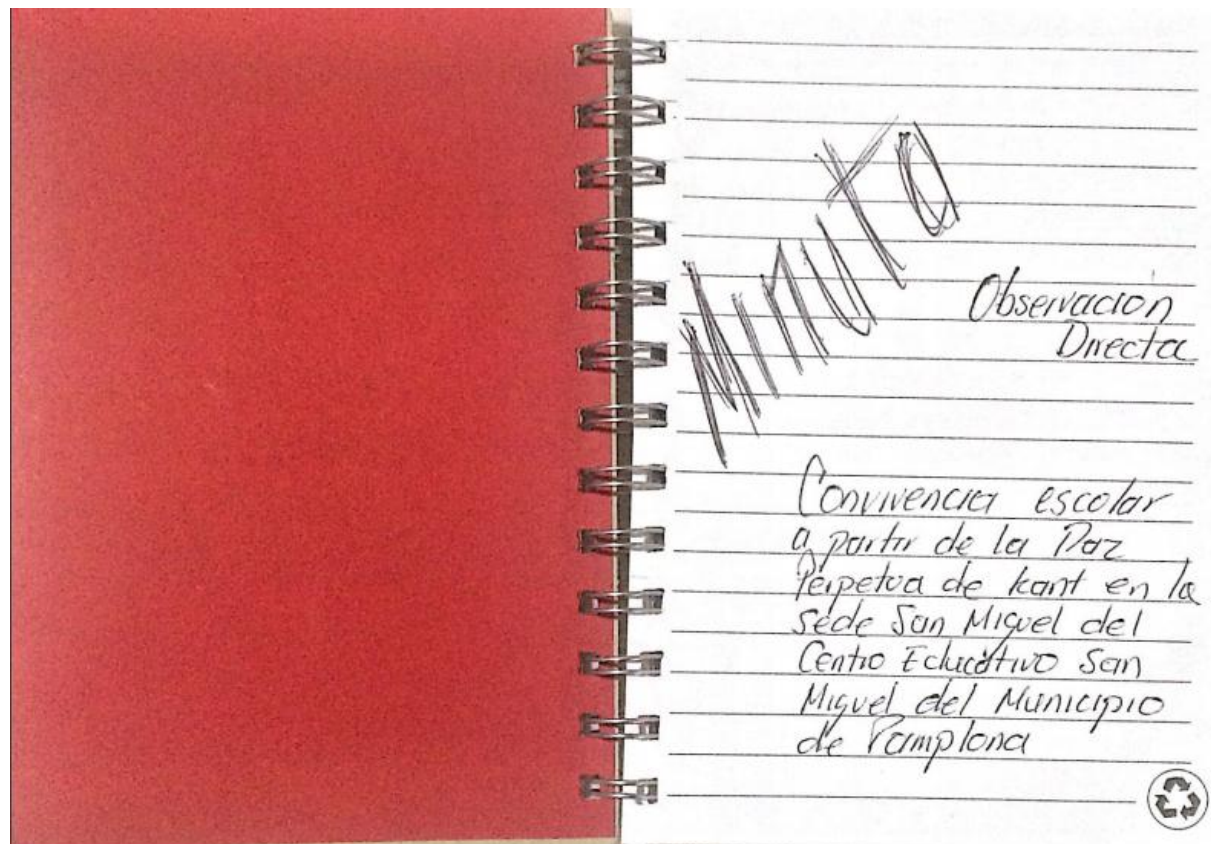 Minuta
Observación
Directa
Convivencia escolar
a partir de la Paz
Perpetua de kant en la
sede San Miguel del
Centro Educativo San
Miguel del Municipio
de Pamplona